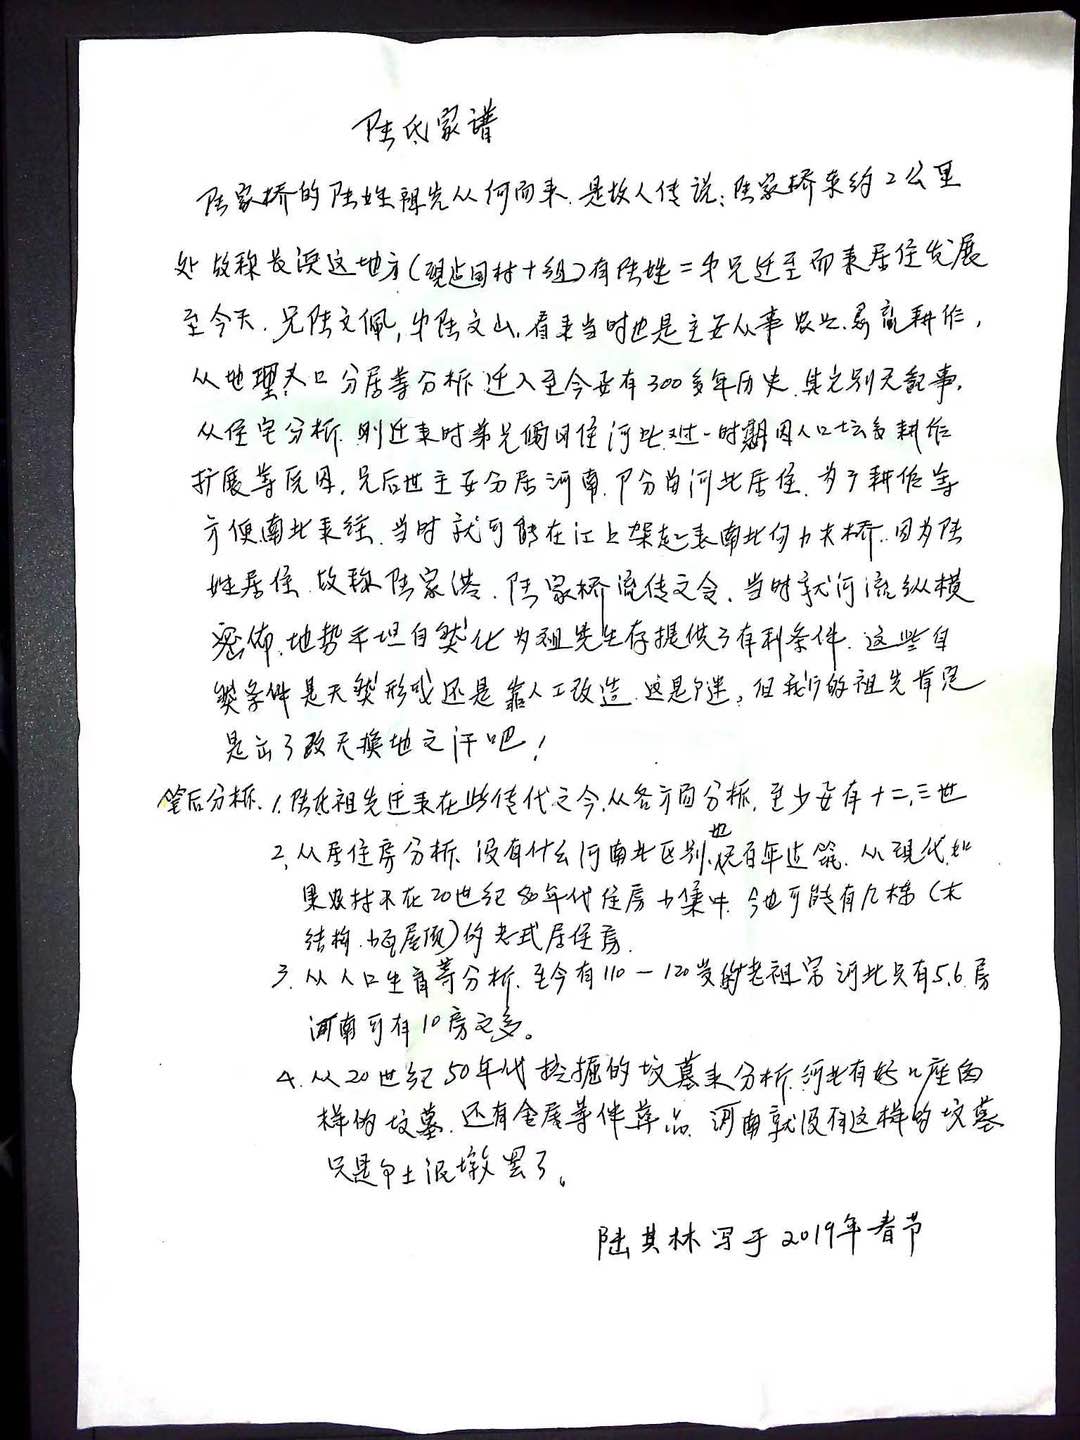 陆氏家谱
陆家桥的陆姓祖先从何而来.是故人传说:陆家桥东约2公里
处故称长浜这地方(现近国村十组)有陆姓二弟兄迁至而来居住发展
至今天.兄陆文佩,弟陆文山.看来当时也是主要从事农业.易高耕作,
从地理人口分居等分析迁入至今要有300多年历史.其它别无記事.
从住宅分析.刚迁来时弟兄俩同住河北.过一时期因人口增多耕作
扩展等原因,兄后世主要分居河南.部分留河北居住.为了耕作等
方便南北来往.当时就可能在江上架起南北何力夫桥.因为陆
姓居住.故称陆家港.陆家桥流传之今.当时就河流纵横
密佈.地势平坦自然化为祖先生存提供了有利条件.这些自
然条件是天然形成还是靠人工改造.这是个迷,但我们的祖先肯定
是出了改天换地之汗吧!
笔后分析.1.陆氏祖先迁来在此传代之今.从各方面分析.至少要有十二,三世
2,从居住房分析.没有什么河南北区别,也很百年建筑.从现代.如
果农村不在20世纪80年代住房少集中.今也可能有几栋(木
结构.小瓦屋顶)的老式居住房.
3.从人口生育等分析.至今有110一120岁的老祖宗河北只有5.6房
河南可有10房之多。
4.从20世纪50年代挖掘的坟墓来分析.河北有好几座
样的坟墓.还有金属等伴葬品.河南就没有这样的坟墓
只是个土泥墩罢了。
陆其林写于2019年春节